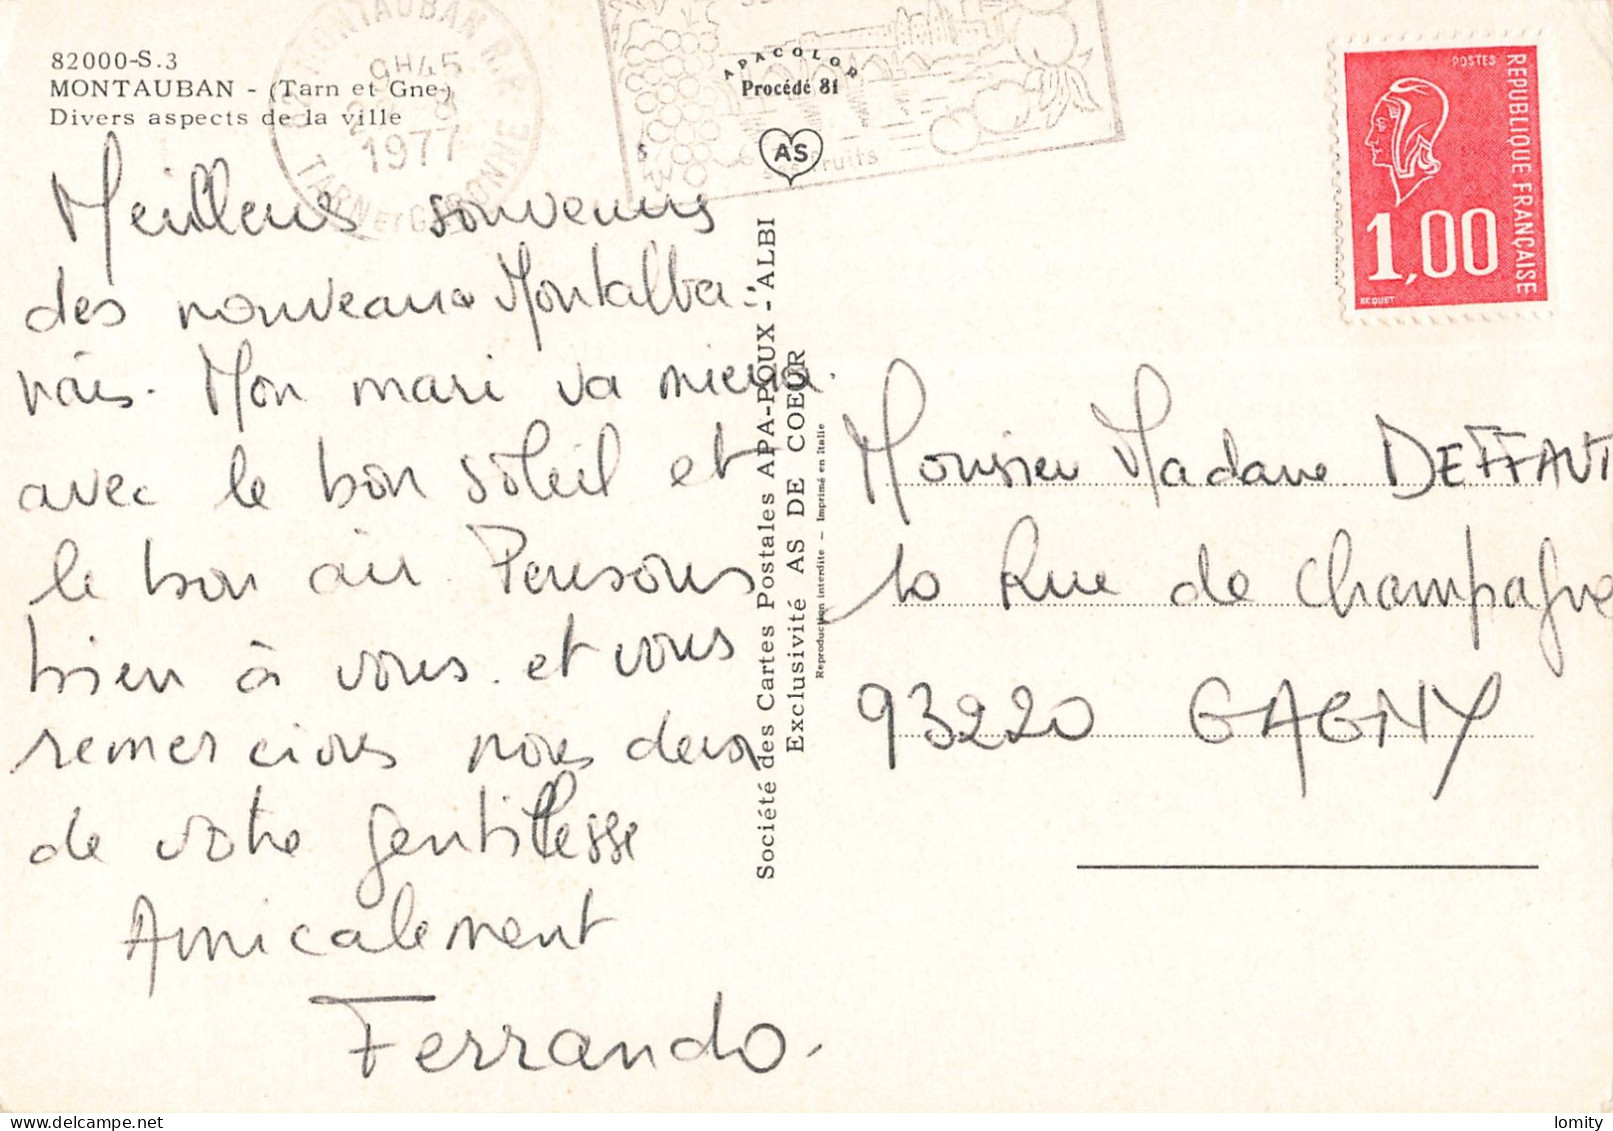 82000-S.3
MONTAUBAN - (Tarn et Gne)
Divers aspects de la ville
MONTAUBAN R.P.
9H45
1977
TARN ET GARONNE
fruits
APACOLOR
Procédé 81
AS
POSTES
REPUBLIQUE FRANÇAISE
1,00
BEQUET
Meilleurs souvenirs
des nouveaux Montalba-
nais. Mon mari va mieux.
avec le bon soleil et
le bon air. Pensons
bien à vous. et vous
remercions nous deux
de votre gentillesse
Amicalement
Ferrando.
Société des Cartes Postales APA-POUX - ALBI
Exclusivité AS DE COEUR
Reproduction interdite — Imprimé en Italie
Monsieur Madame DEFFAUT
10 Rue de Champagne
93220 GAGNY
lomity